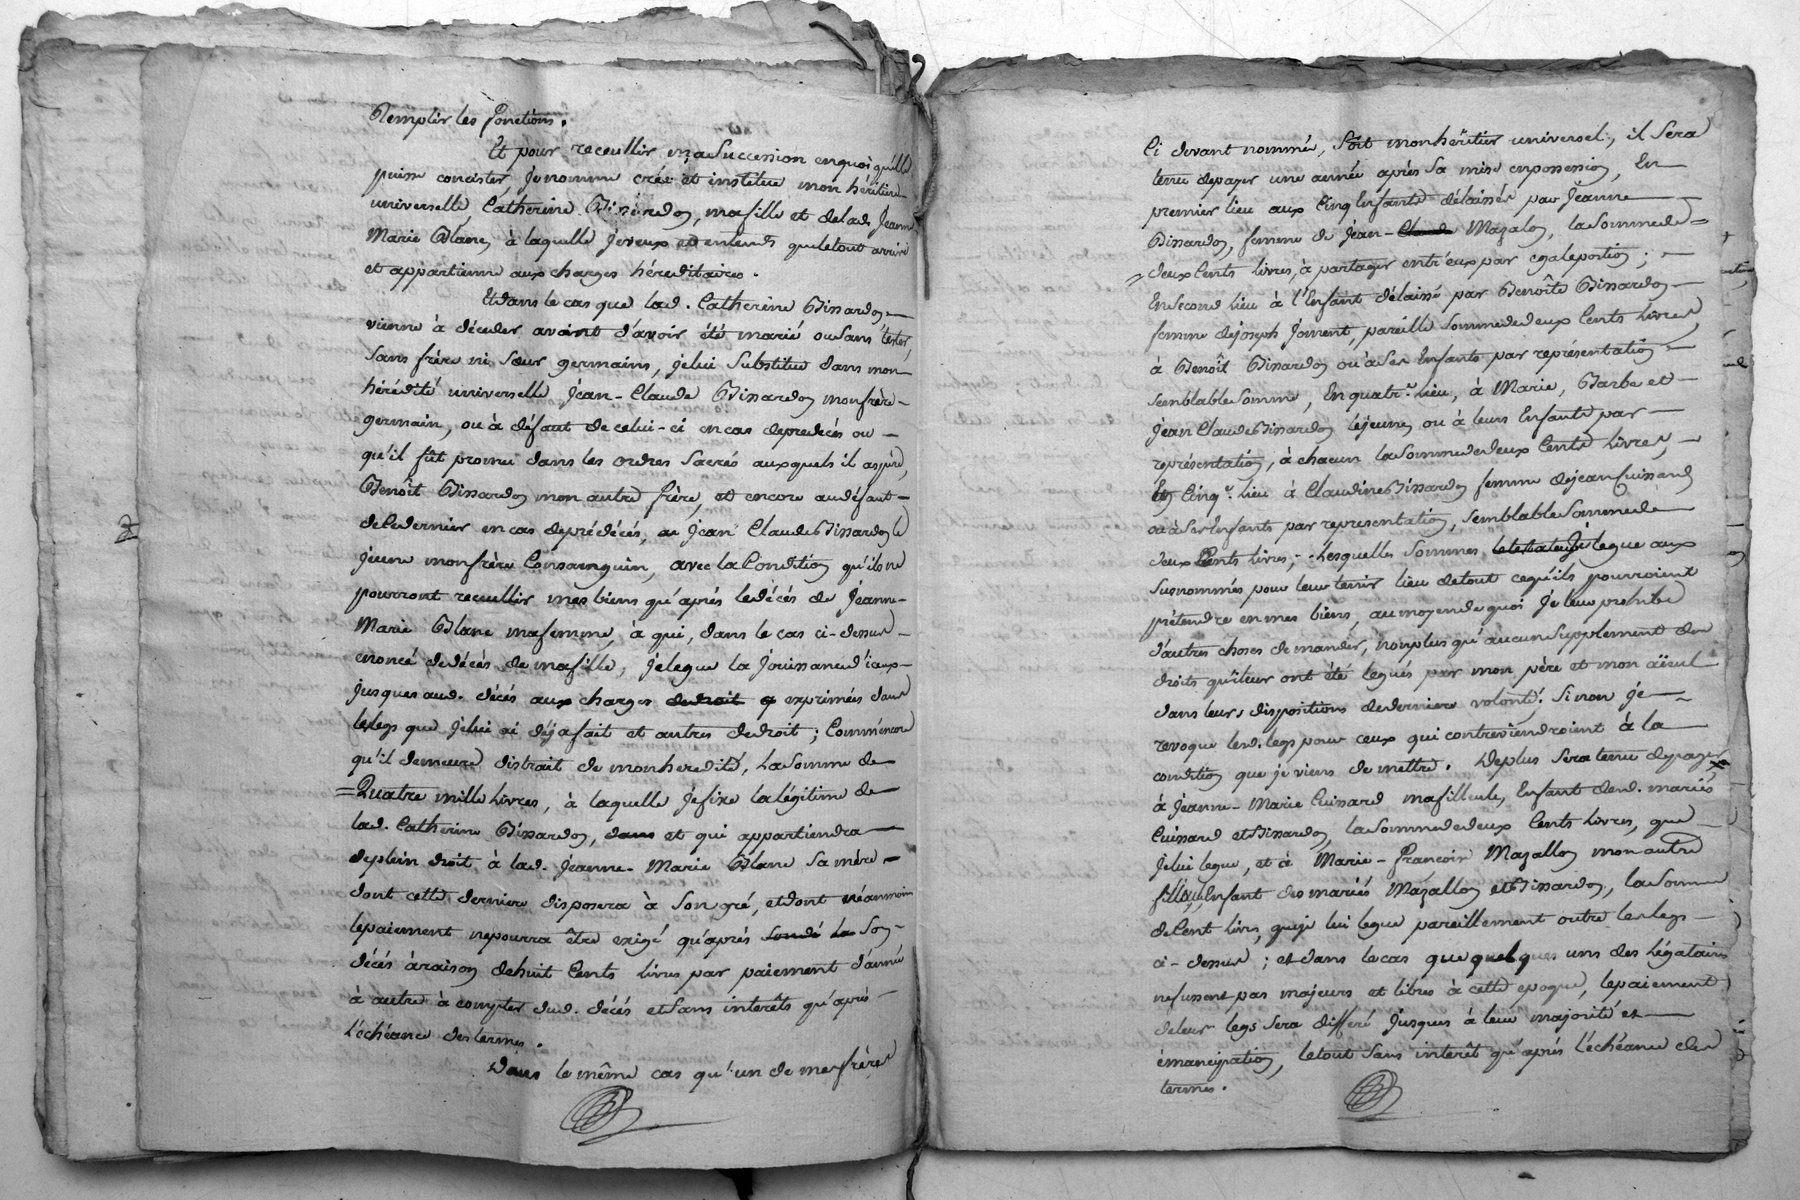 Remplir les fonctions.
Et pour receuillir ma Succession en quoi qu'elle
puisse concister, Je nomme crée et institue mon héritière
universelle, Catherine Bissardon, ma fille et de lad. Jeanne
Marie Blanc, à laquelle je veux et entends que le tout arrive
et appartienne aux charges héréditaires.
Et dans le cas que lad. Catherine Bissardon
vienne à décéder avant d'avoir été marié ou sans tester,
sans frère ni sœur germains, je lui substitue dans mon
hérédité universelle Jean-Claude Bissardon mon frère
germain, ou à défaut de celui-ci en cas de predécés ou
qu'il fût promu dans les ordres sacrés auxquels il aspire,
Benoît Bissardon mon autre frère, et encore au défaut
de ce dernier en cas de prédécés, au Jean Claude Bissardon le
jeune mon frère Consanguin, avec la Condition qu'ils ne
pourront recuillir mes biens qu'après le décés de Jeanne-
Marie Blanc ma femme, à qui, dans le cas ci-dessus
enoncé de décés de ma fille, je legue la Jouissance d'iceux
jusques aud. décés aux charges de droit exprimées dans
le legs que je lui ai déja fait et autres de droit; Comm'encore
qu'il demeure distrait de mon heredité, La Somme de
=Quatre mille Livres, à laquelle je fixe la légitime de
lad. Catherine Bissardon, dans et qui appartiendra
de plein droit à lad. Jeanne-Marie Blanc Sa mère
dont cette derniere disposera à Son gré, et dont néanmoin
le paiement ne pourra être exigé qu'après Son
décés à raison de huit Cents livres par paiement d'année
à autre à compter dud. décés et Sans interêts qu'après
l'échéance des termes.
Dans le même cas qu'un de mes frères
Ci devant nommés, Soit mon héritier universel, il Sera
tenu de payer une année après Sa mise en possession, En
premier lieu aux Cinq Enfants délaissés par Jeanne
Bissardon, femme de Jean-Claude Mazalon, la Somme de
deux Cents livres, à partager entr'eux par egale portion;
En Second lieu à l'Enfant délaissé par Benoîte Bissardon
femme de Joseph Joment, pareille Somme de deux Cents livres
à Benoît Bissardon ou à Ses Enfants par représentation
Semblable Somme, En quatr.e lieu, à Marie, Barbe et
Jean Claude Bissardon le jeune, ou à leurs Enfants par
représentation, à chacun la Somme de deux Cents Livres,
En Cinq.e lieu à Claudine Bissardon femme de Jean Cuissard
ou à Ses Enfants par representation, Semblable Somme de
deux Cents livres; Lesquelles Sommes Je legue aux
Susnommés pour leur tenir lieu de tout ce qu'ils pourroient
prétendre en mes biens, au moyen de quoi Je leur prohibe
d'autres choses demander, non plus qu'aucun Supplement de
droits qui leur ont été legués par mon père et mon aïeul
dans leurs dispositions de derniere volonté. Si non je
revoque lesd. legs pour ceux qui contreviendroient à la
condition que je viens de mettre. De plus Sera tenu de payer
à Jeanne-Marie Cuissard ma filleule, Enfant desd. mariés
Cuissard et Bissardon, la Somme de deux Cents Livres, que
je lui legue, et à Marie-François Mazallon mon autre
filleul, Enfant des mariés Mazallon et Bissardon, la Somme
de Cent livres, que je lui legue pareillement outre les legs
ci-dessus; et dans le cas que quelques uns des Légataires
ne fussent pas majeurs et libres à cette epoque, le paiement
de leur legs Sera différé Jusques à leur majorité et
émancipation, le tout Sans interêt qu'après l'échéance des
termes.